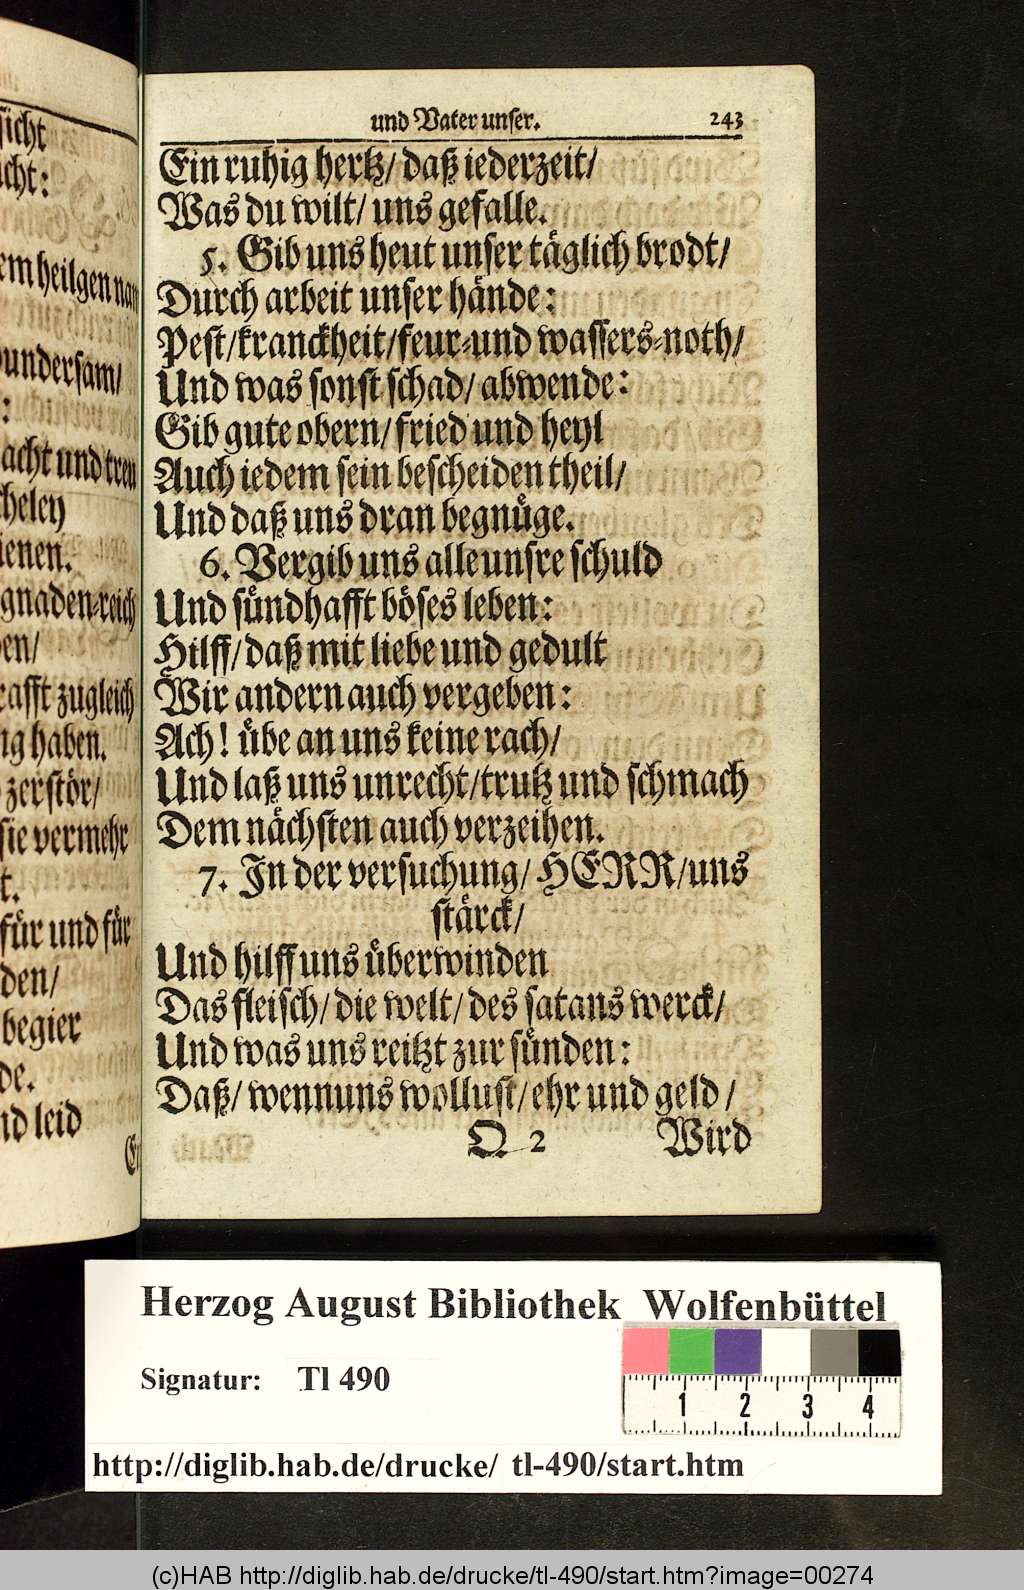 sicht
icht:
em heilgen nam
undersam/
:
acht und treu
heley
ienen.
gnaden-reich
en/
rafft zugleich
ng haben.
zerstör/
sie vermehr
t.
für und für
den/
begier
de.
nd leid
und Vater unser. 243
Ein ruhig hertz/ daß iederzeit/
Was du wilt/ uns gefalle.
5. Gib uns heut unser täglich brodt/
Durch arbeit unser hände:
Pest/kranckheit/feur-und wassers-noth/
Und was sonst schad/ abwende:
Gib gute obern/ fried und heyl
Auch iedem sein bescheiden theil/
Und daß uns dran begnüge.
6. Vergib uns alle unsre schuld
Und sündhafft böses leben:
Hilff/ daß mit liebe und gedult
Wir andern auch vergeben:
Ach! übe an uns keine rach/
Und laß uns unrecht/trutz und schmach
Dem nächsten auch verzeihen.
7. In der versuchung/ HERR/uns
stärck/
Und hilff uns überwinden
Das fleisch/ die welt/ des satans werck/
Und was uns reitzt zur sünden:
Daß/ wenn uns wollust/ ehr und geld/
Q 2 Wird
Herzog August Bibliothek Wolfenbüttel
Signatur: Tl 490
1 2 3 4
http://diglib.hab.de/drucke/ tl-490/start.htm
(c)HAB http://diglib.hab.de/drucke/tl-490/start.htm?image=00274